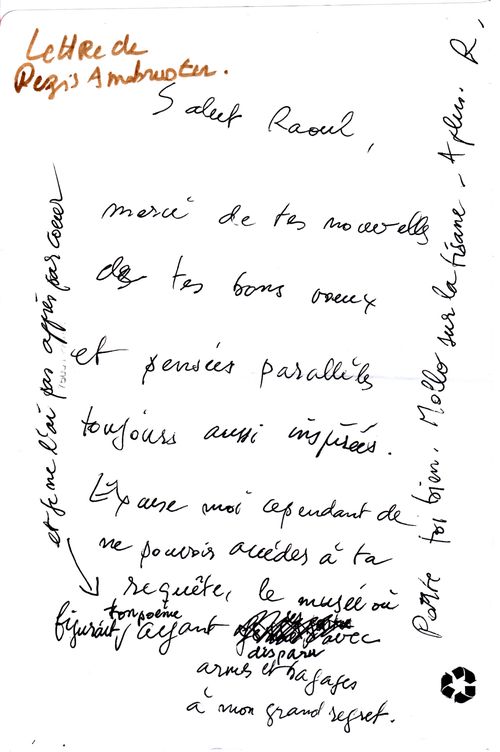 Lettre de
Regis Ambruster.
Salut Raoul,
merci de tes nouvelles
de tes bons voeux
et pensées parallèles
toujours aussi inspirées.
Excuse moi cependant de
ne pouvoir accéder à ta
requête, le musée où
figurait ton poème, ayant
disparu avec
armes et bagages
à mon grand regret.
et je ne l'ai pas appris par coeur
Porte toi bien. Mollo sur la tisane - A plus. R,